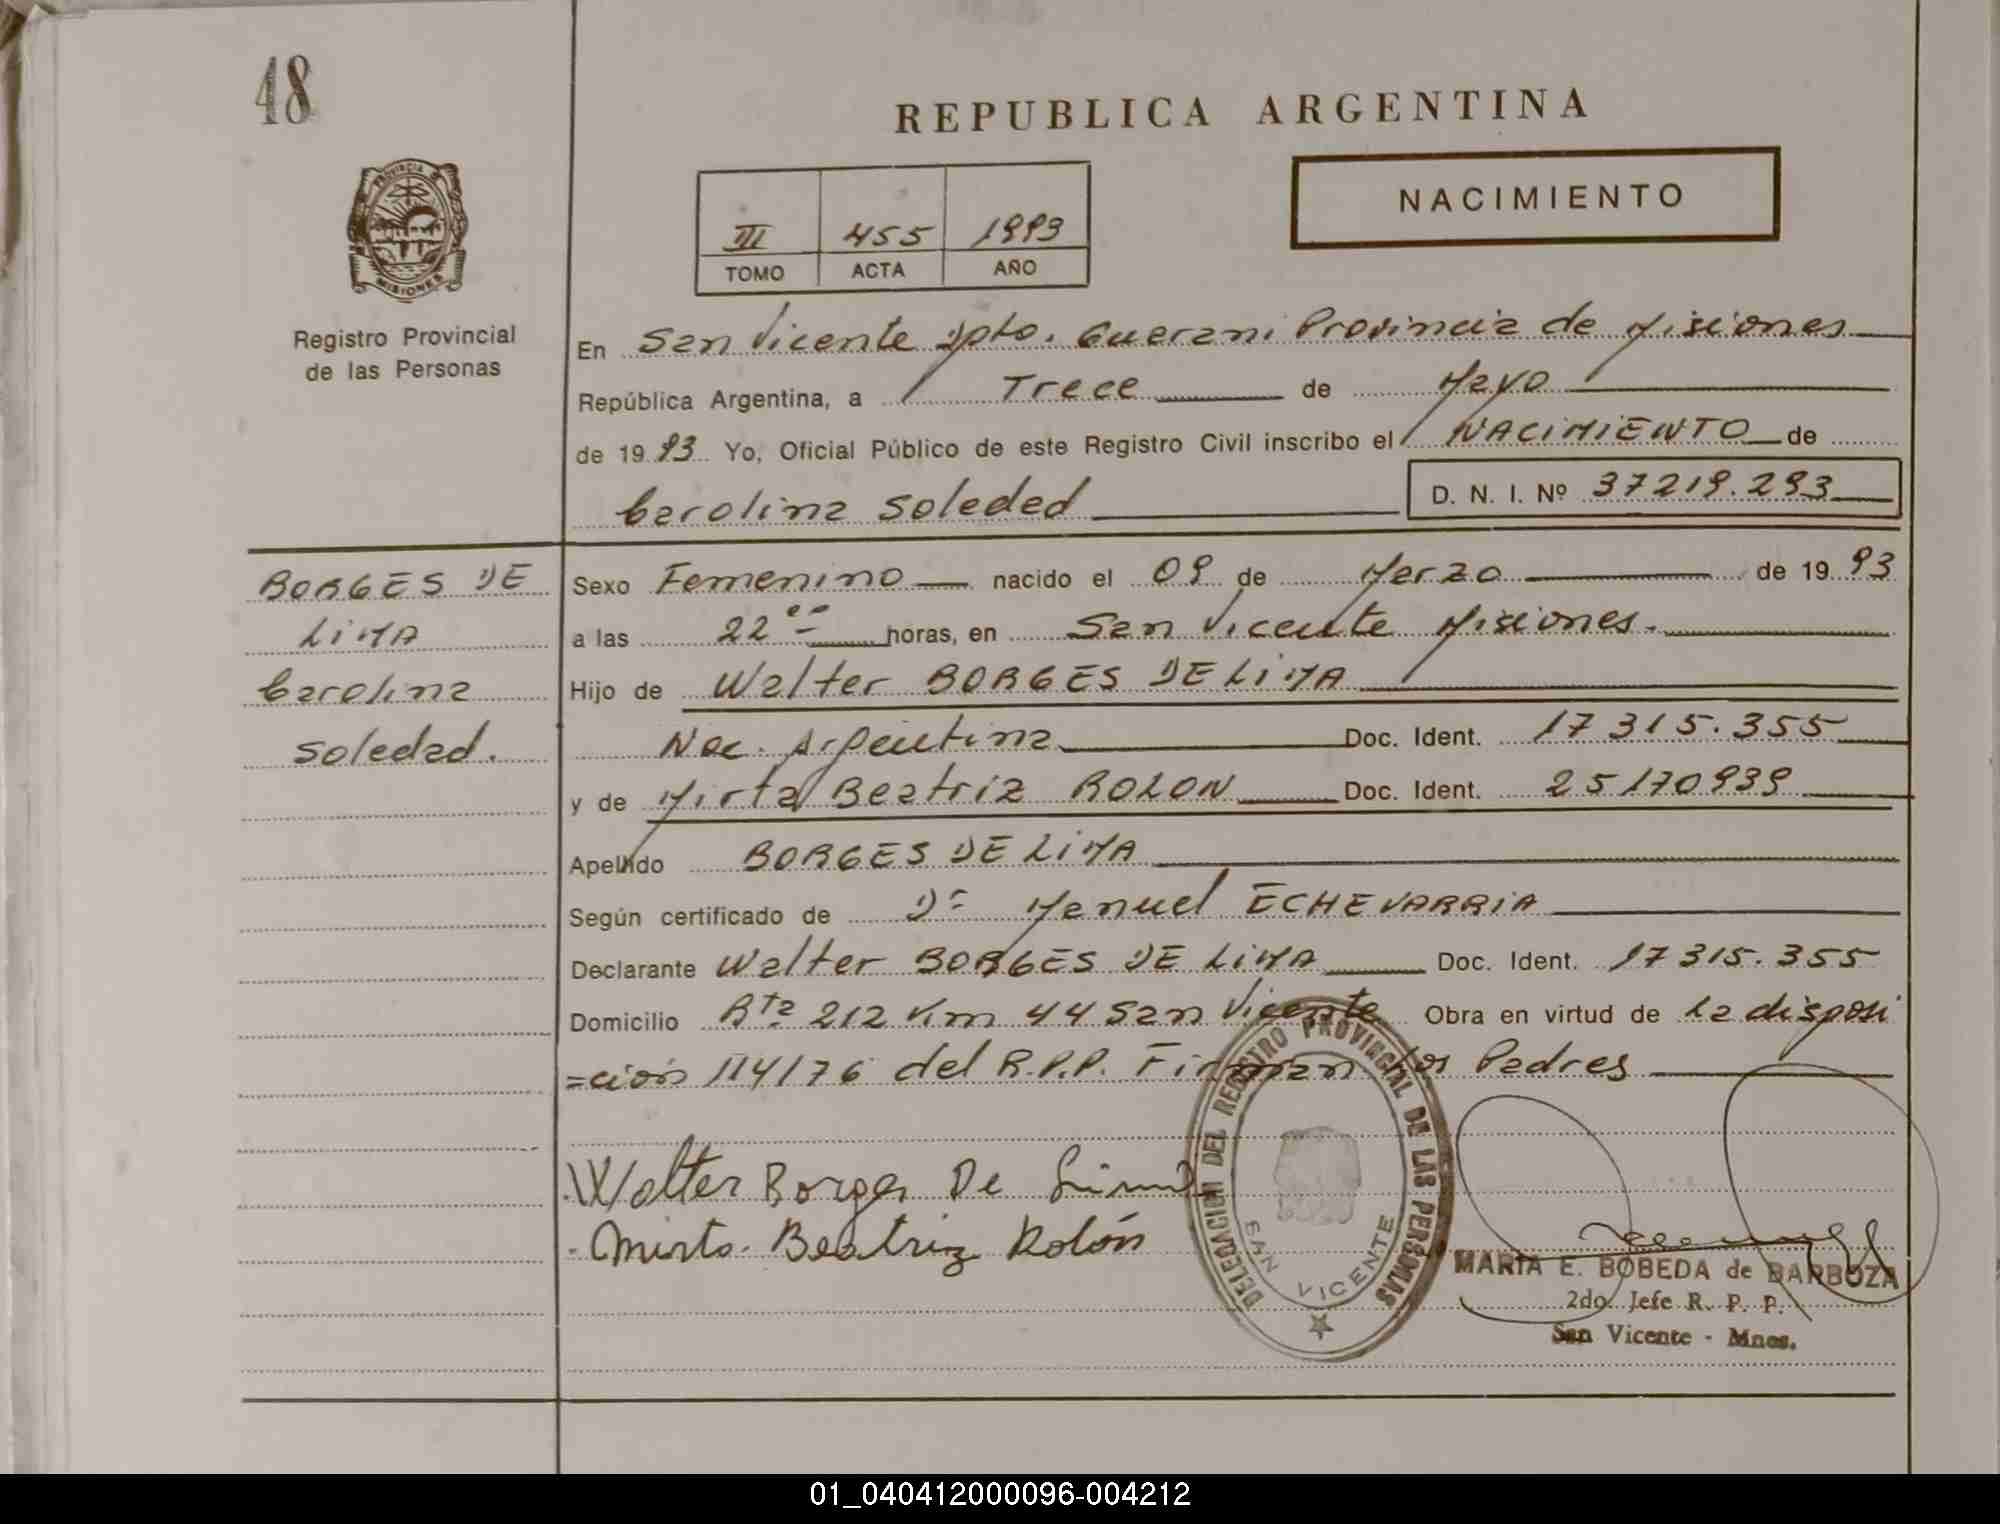 48
REPUBLICA ARGENTINA
NACIMIENTO
III 455 1993
TOMO ACTA AÑO
PROVINCIA D MISIONES
Registro Provincial
de las Personas
En San Vicente Dpto. Guarani Provincia de Misiones
República Argentina, a Trece de Mayo
de 19 93 Yo, Oficial Público de este Registro Civil inscribo el NACIMIENTO de
Carolina Soledad D. N. I. Nº 37219.293
BORGES DE
LIMA
Carolina
Soledad.
Sexo Femenino nacido el 09 de Marzo de 19 93
a las 22 00 horas, en San Vicente Misiones.
Hijo de Walter BORGES DE LIMA
Nac. Argentina Doc. Ident. 17 315.355
y de Mirta Beatriz ROLON Doc. Ident. 25170939
Apellido BORGES DE LIMA
Según certificado de Dr Manuel ECHEVARRIA
Declarante Walter BORGES DE LIMA Doc. Ident. 17 315.355
Domicilio Rta 212 Km 44 San Vicente Obra en virtud de La disposi
=ción 114/76 del R.P.P. Firman los Padres
Walter Borges De Lima
Mirta Beatriz Rolón
DELEGACION DEL REGISTRO PROVINCIAL DE LAS PERSONAS
SAN VICENTE
MARIA E. BOBEDA de BARBOZA
2do. Jefe R. P. P.
San Vicente - Mnes.
01_040412000096-004212